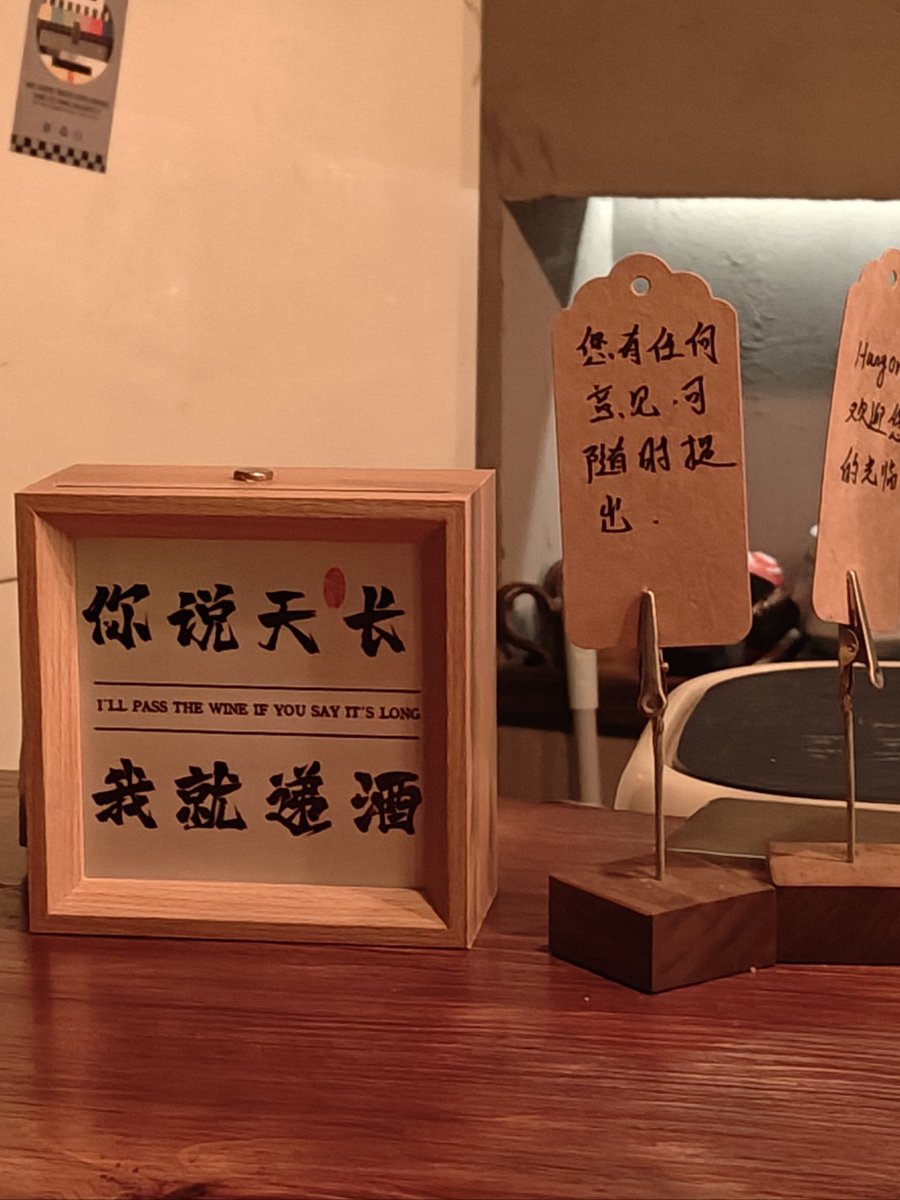 你说天长
I'LL PASS THE WINE IF YOU SAY IT'S LONG
我就递酒
您有任何
意见.可
随时提
出.
欢迎您
的光临